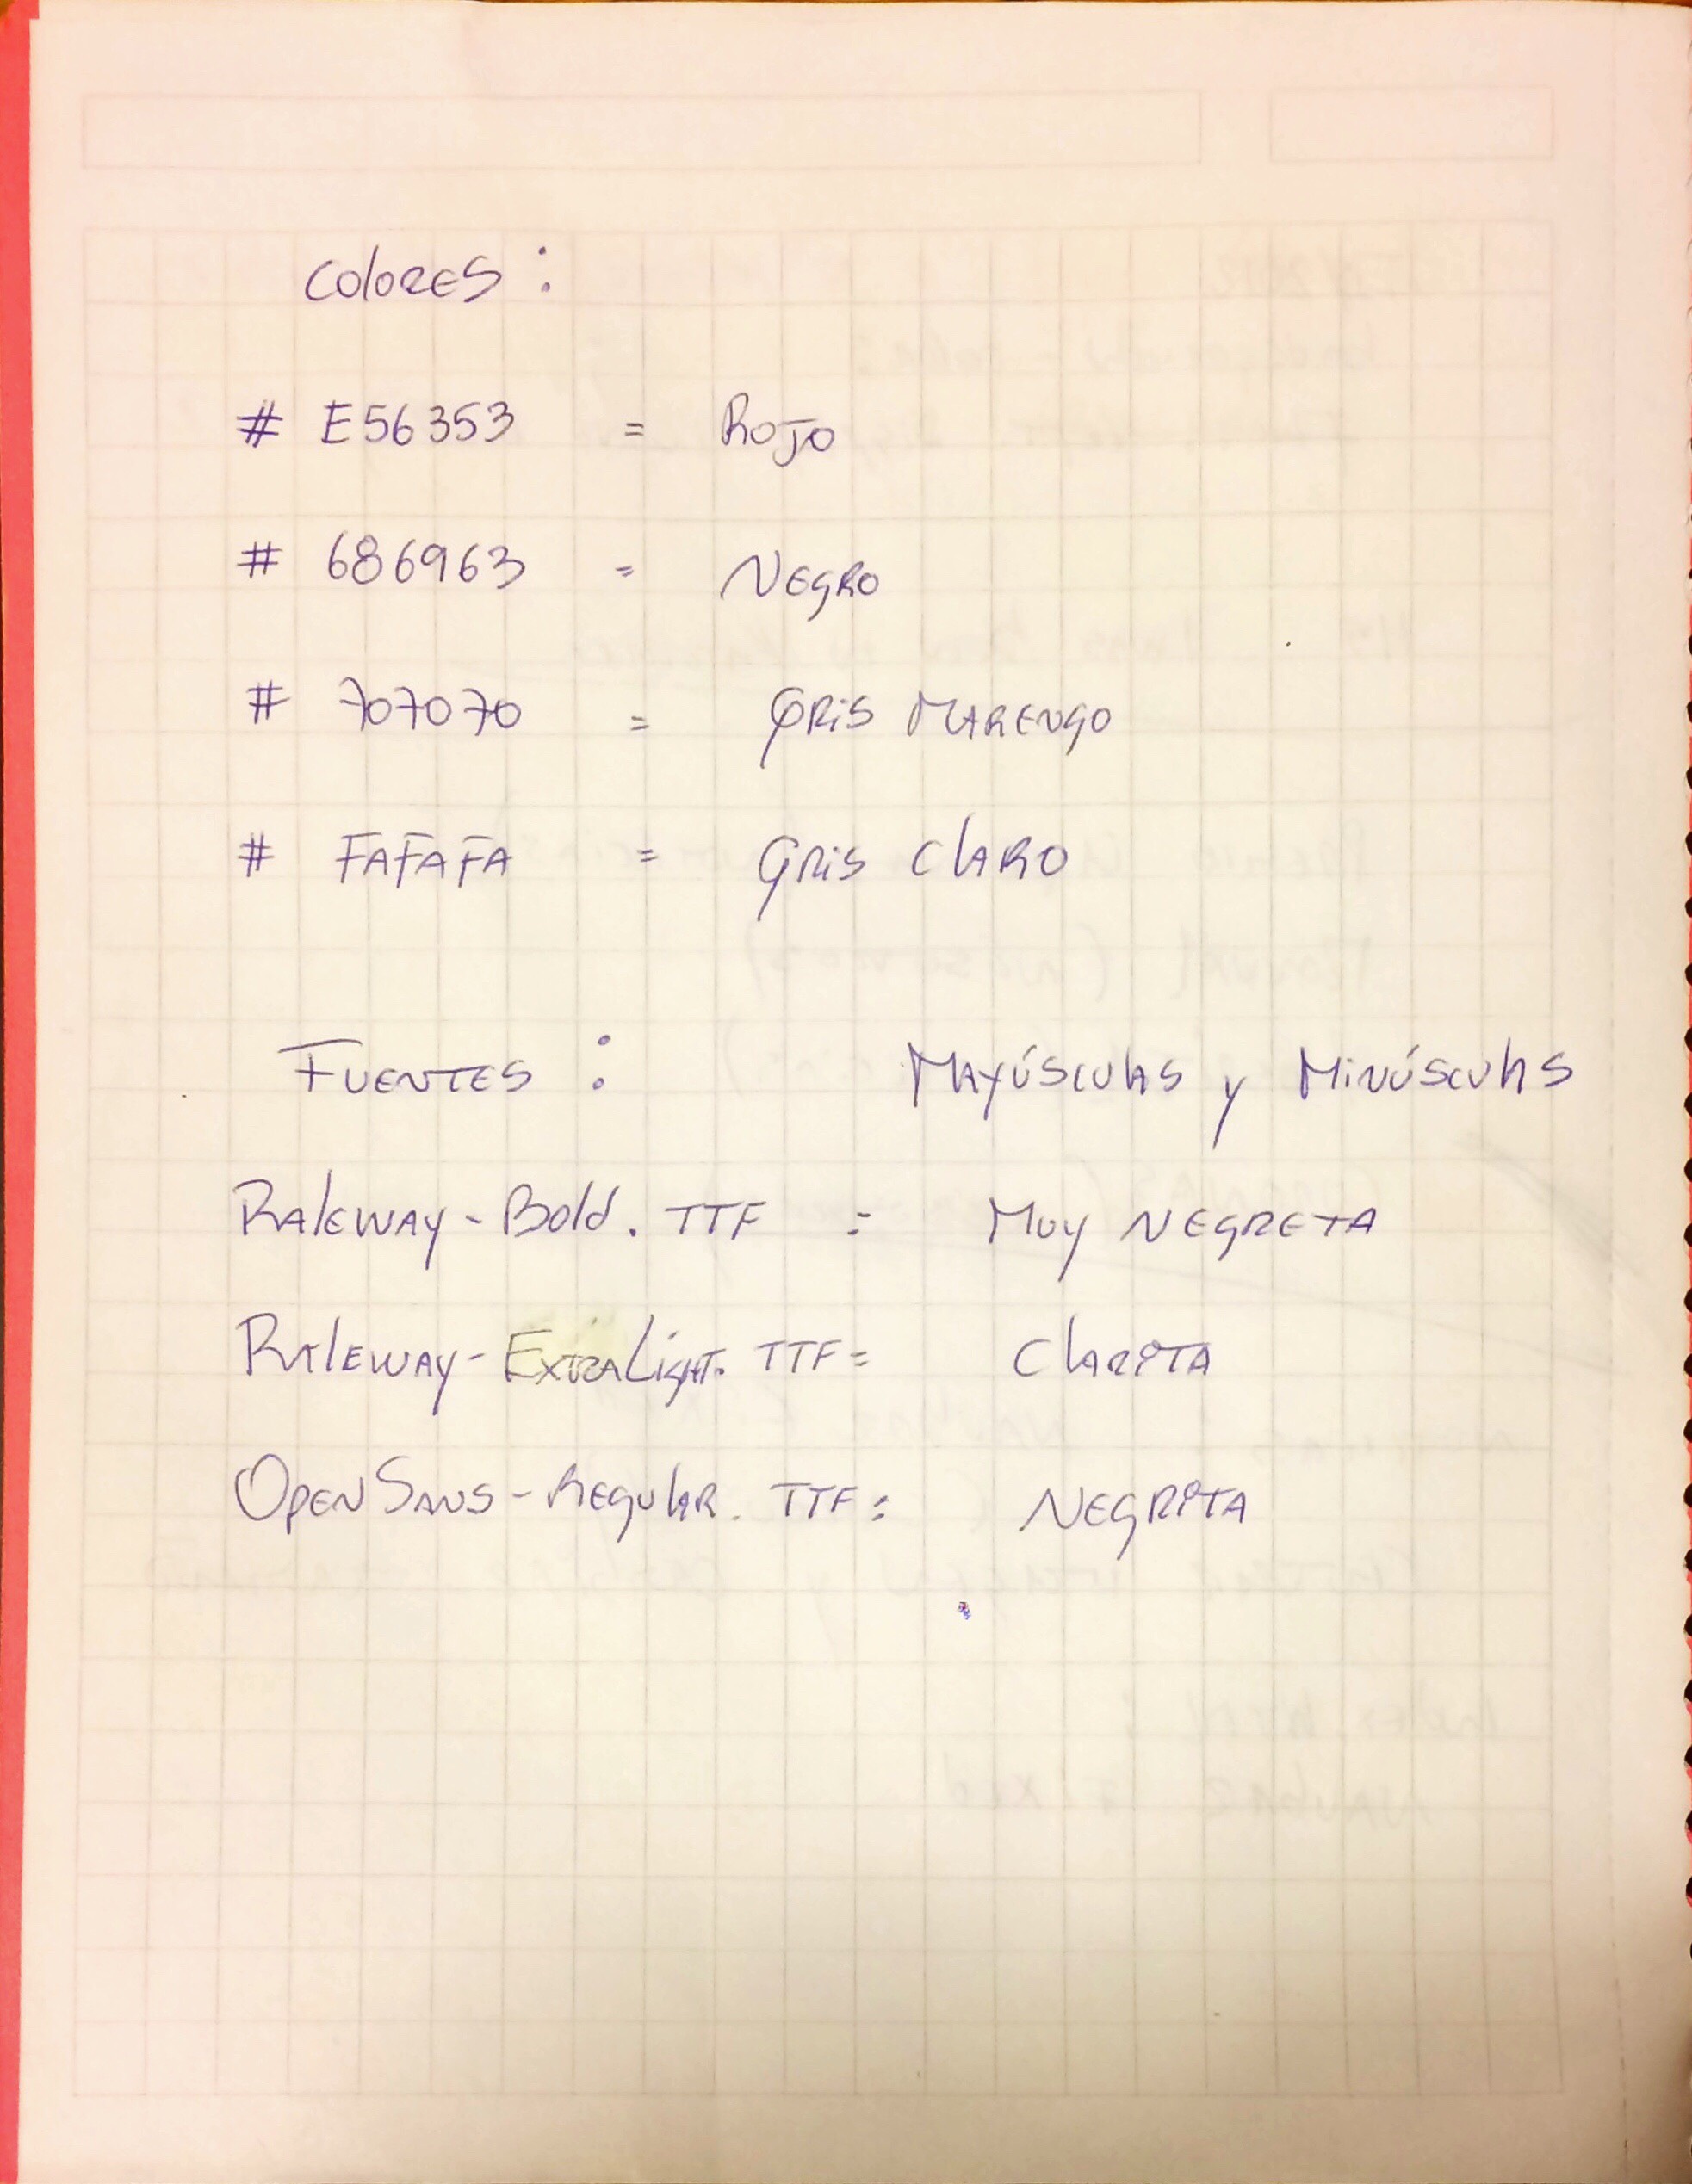 Colores :
# E56353 = Rojo
# 686963 = Negro
# 707070 = Gris Marengo
# FAFAFA = Gris Claro
Fuentes : Mayúsculas y Minúsculas
Raleway-Bold.TTF = Muy Negreta
Raleway-ExtraLight.TTF = Clarita
OpenSans-Regular.TTF = Negrita